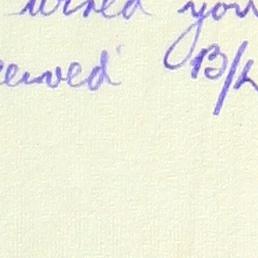 wired you
ceived B/L